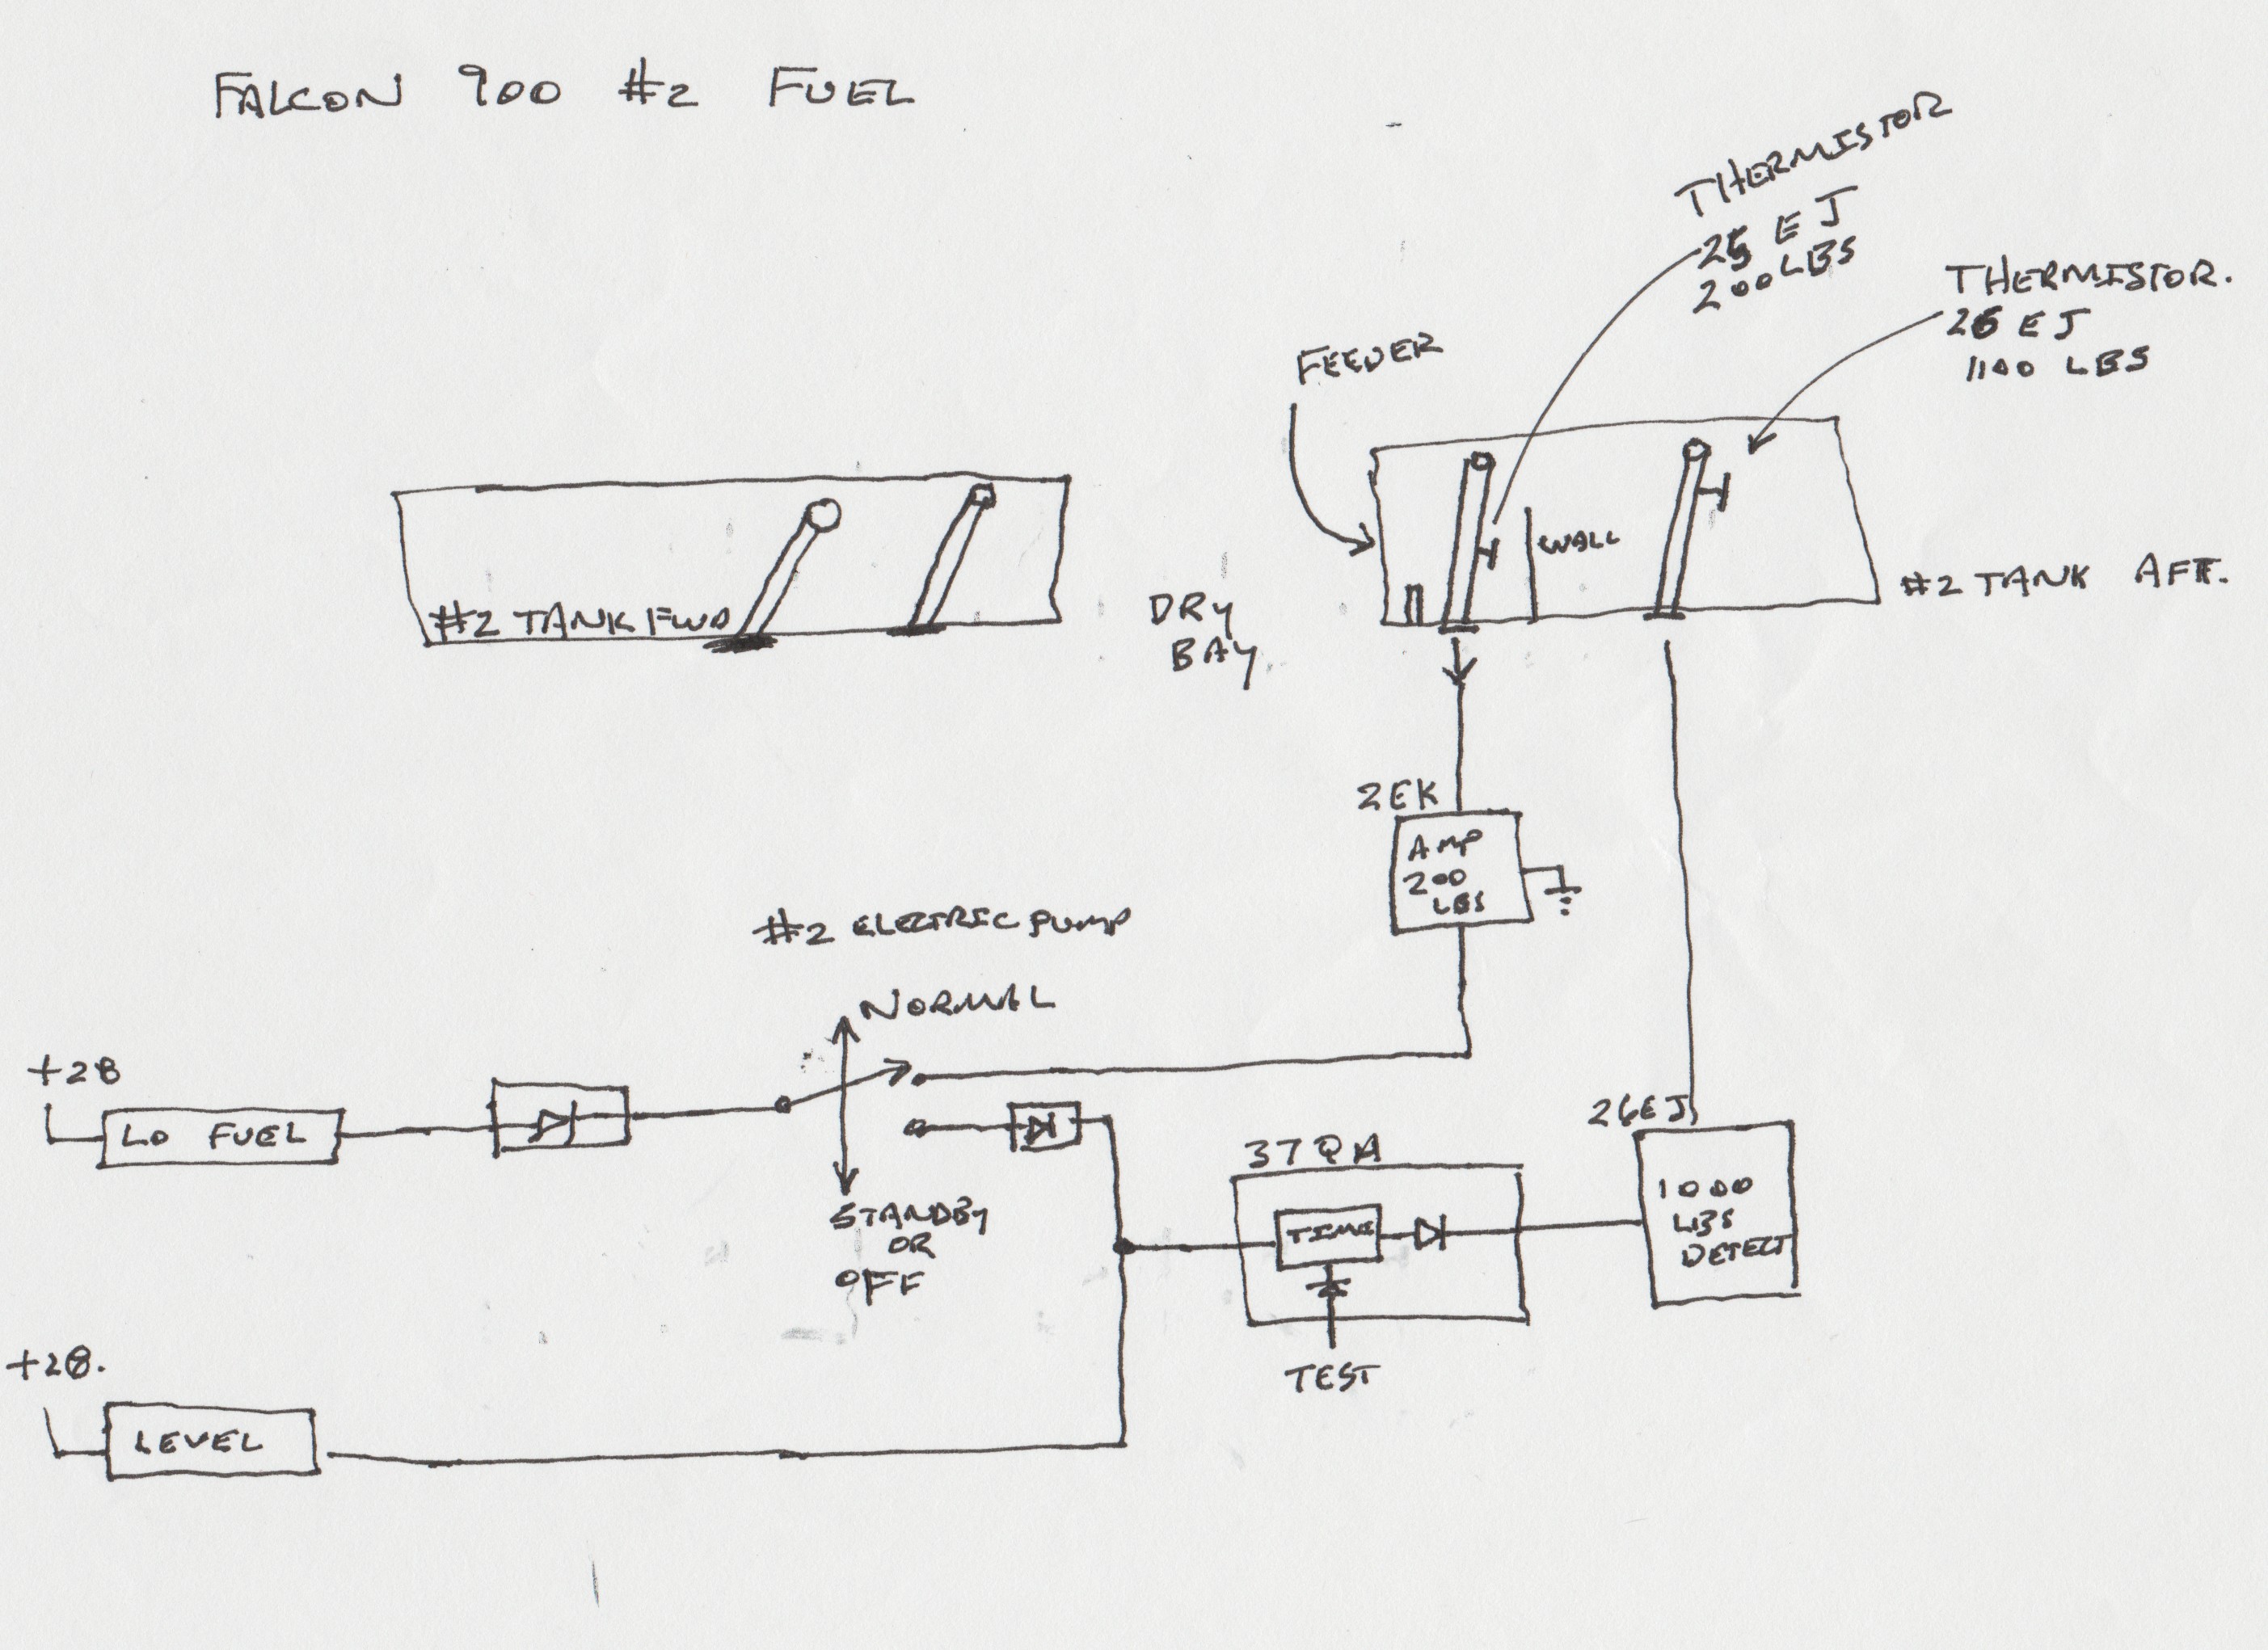 FALCON 900 #2 FUEL
THERMISTOR
25 EJ
200 LBS
THERMISTOR.
26 EJ
1100 LBS
FEEDER
WALL
#2 TANK FWD
DRY
BAY
#2 TANK AFT.
2EK
AMP
200
LBS
#2 ELECTRIC PUMP
NORMAL
+28
LO FUEL
STANDBY
OR
OFF
37QA
TIME
TEST
26EJ
1000
LBS
DETECT
+28.
LEVEL